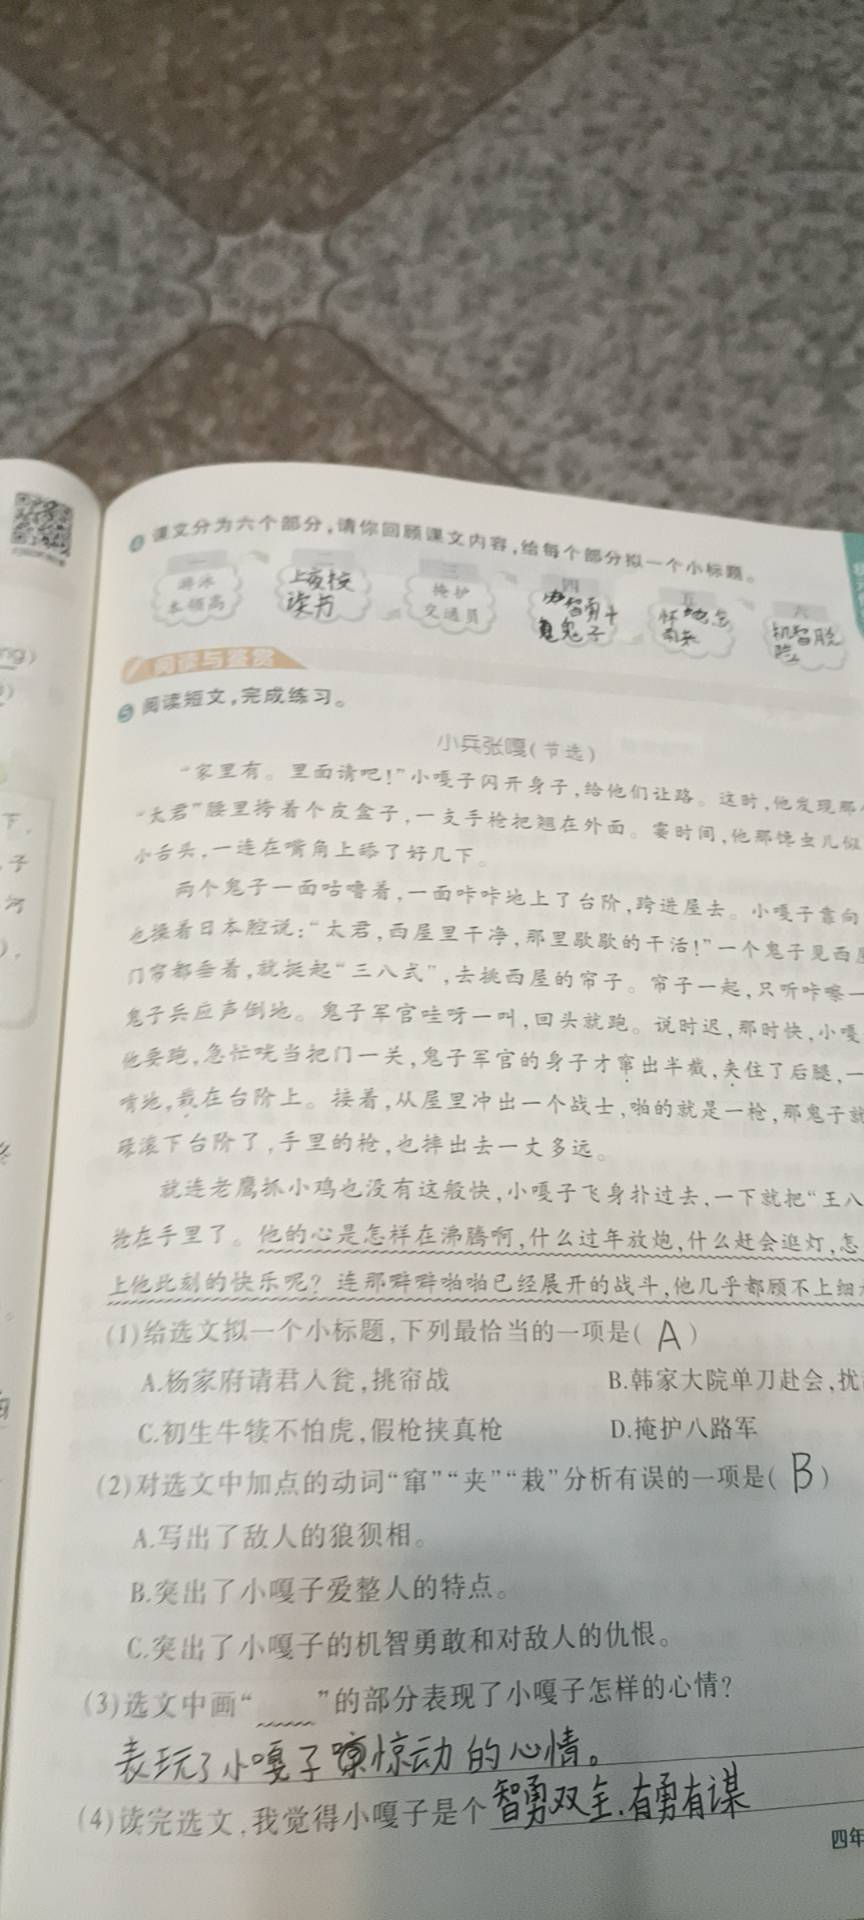 4 课文分为六个部分,请你回顾课文内容,给每个部分拟一个小标题。
一 二 三 四 五 六
游泳
本领高
上夜校
读书
掩护
交通员
智勇斗
鬼子
怀地念
机智脱
险
阅读与鉴赏
5 阅读短文,完成练习。
小兵张嘎(节选)
“家里有。里面请吧!”小嘎子闪开身子,给他们让路。这时,他发现那
“太君”腰里挎着个皮盒子,一支手枪把翘在外面。霎时间,他那馋虫儿似
小舌头,一连在嘴角上舔了好几下。
两个鬼子一面咕噜着,一面咔咔地上了台阶,跨进屋去。小嘎子靠向
也操着日本腔说:“太君,西屋里干净,那里歇歇的干活!”一个鬼子见西屋
门帘都垂着,就挺起“三八式”,去挑西屋的帘子。帘子一起,只听咔嚓一
鬼子兵应声倒地。鬼子军官哇呀一叫,回头就跑。说时迟,那时快,小嘎
他要跑,急忙咣当把门一关,鬼子军官的身子才窜出半截,夹住了后腿,一
啃地,栽在台阶上。接着,从屋里冲出一个战士,啪的就是一枪,那鬼子就
球滚下台阶了,手里的枪,也摔出去一丈多远。
就连老鹰抓小鸡也没有这般快,小嘎子飞身扑过去,一下就把“王八
抢在手里了。他的心是怎样在沸腾啊,什么过年放炮,什么赶会逛灯,怎
上他此刻的快乐呢?连那噼噼啪啪已经展开的战斗,他几乎都顾不上细
(1)给选文拟一个小标题,下列最恰当的一项是( A )
A.杨家府请君入瓮,挑帘战 B.韩家大院单刀赴会,扰
C.初生牛犊不怕虎,假枪挟真枪 D.掩护八路军
(2)对选文中加点的动词“窜”“夹”“栽”分析有误的一项是( B )
A.写出了敌人的狼狈相。
B.突出了小嘎子爱整人的特点。
C.突出了小嘎子的机智勇敢和对敌人的仇恨。
(3)选文中画“ ”的部分表现了小嘎子怎样的心情?
表玩了小嘎子惊动的心情。
(4)读完选文,我觉得小嘎子是个智勇双全、有勇有谋
四年
ng)
下,
子
河